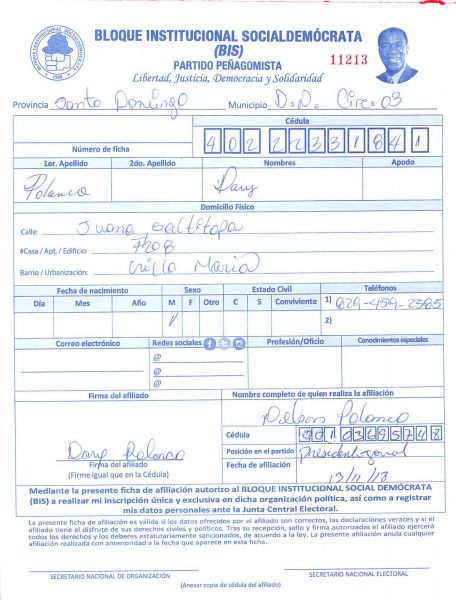 BLOQUE INSTITUCIONAL SOCIALDEMÓCRATA
(BIS)
PARTIDO PEÑAGOMISTA
11213
Libertad, Justicia, Democracia y Solidaridad
Provincia Santo Domingo Municipio D.N. Circ. 03
Cédula
Número de ficha 40222331841
1er. Apellido 2do. Apellido Nombres Apodo
Polanco Dany
Domicilio Físico
Calle: Juana Saltitopa
#Casa / Apt. / Edificio: #208
Barrio / Urbanización: Villa María
Fecha de nacimiento Sexo Estado Civil Teléfonos
Día Mes Año M F Otro C S Conviviente 1) 829-459-2585
2)
Correo electrónico Redes sociales Profesión/Oficio Conocimientos especiales
@
@
@
Firma del afiliado Nombre completo de quien realiza la afiliación
Polanco
Cédula
00103695748
Dany Polanco
Firma del afiliado
(Firme igual que en la Cédula)
Posición en el partido
Fecha de afiliación 13/11/18
Mediante la presente ficha de afiliación autorizo al BLOQUE INSTITUCIONAL SOCIAL DEMÓCRATA
(BIS) a realizar mi inscripción única y exclusiva en dicha organización política, así como a registrar
mis datos personales ante la Junta Central Electoral.
La presente ficha de afiliación es válida si los datos ofrecidos por el afiliado son correctos, las declaraciones veraces y si el
afiliado tiene el disfrute de sus derechos civiles y políticos. Tras su recepción, sello y firma autorizadas el afiliado ejercerá
todos los derechos y los deberes estatutariamente sancionados, de acuerdo a la ley. La presente afiliación anula cualquier
afiliación realizada con anterioridad a la fecha que aparece en esta ficha.
SECRETARIO NACIONAL DE ORGANIZACIÓN SECRETARIO NACIONAL ELECTORAL
(Anexar copia de cédula del afiliado)